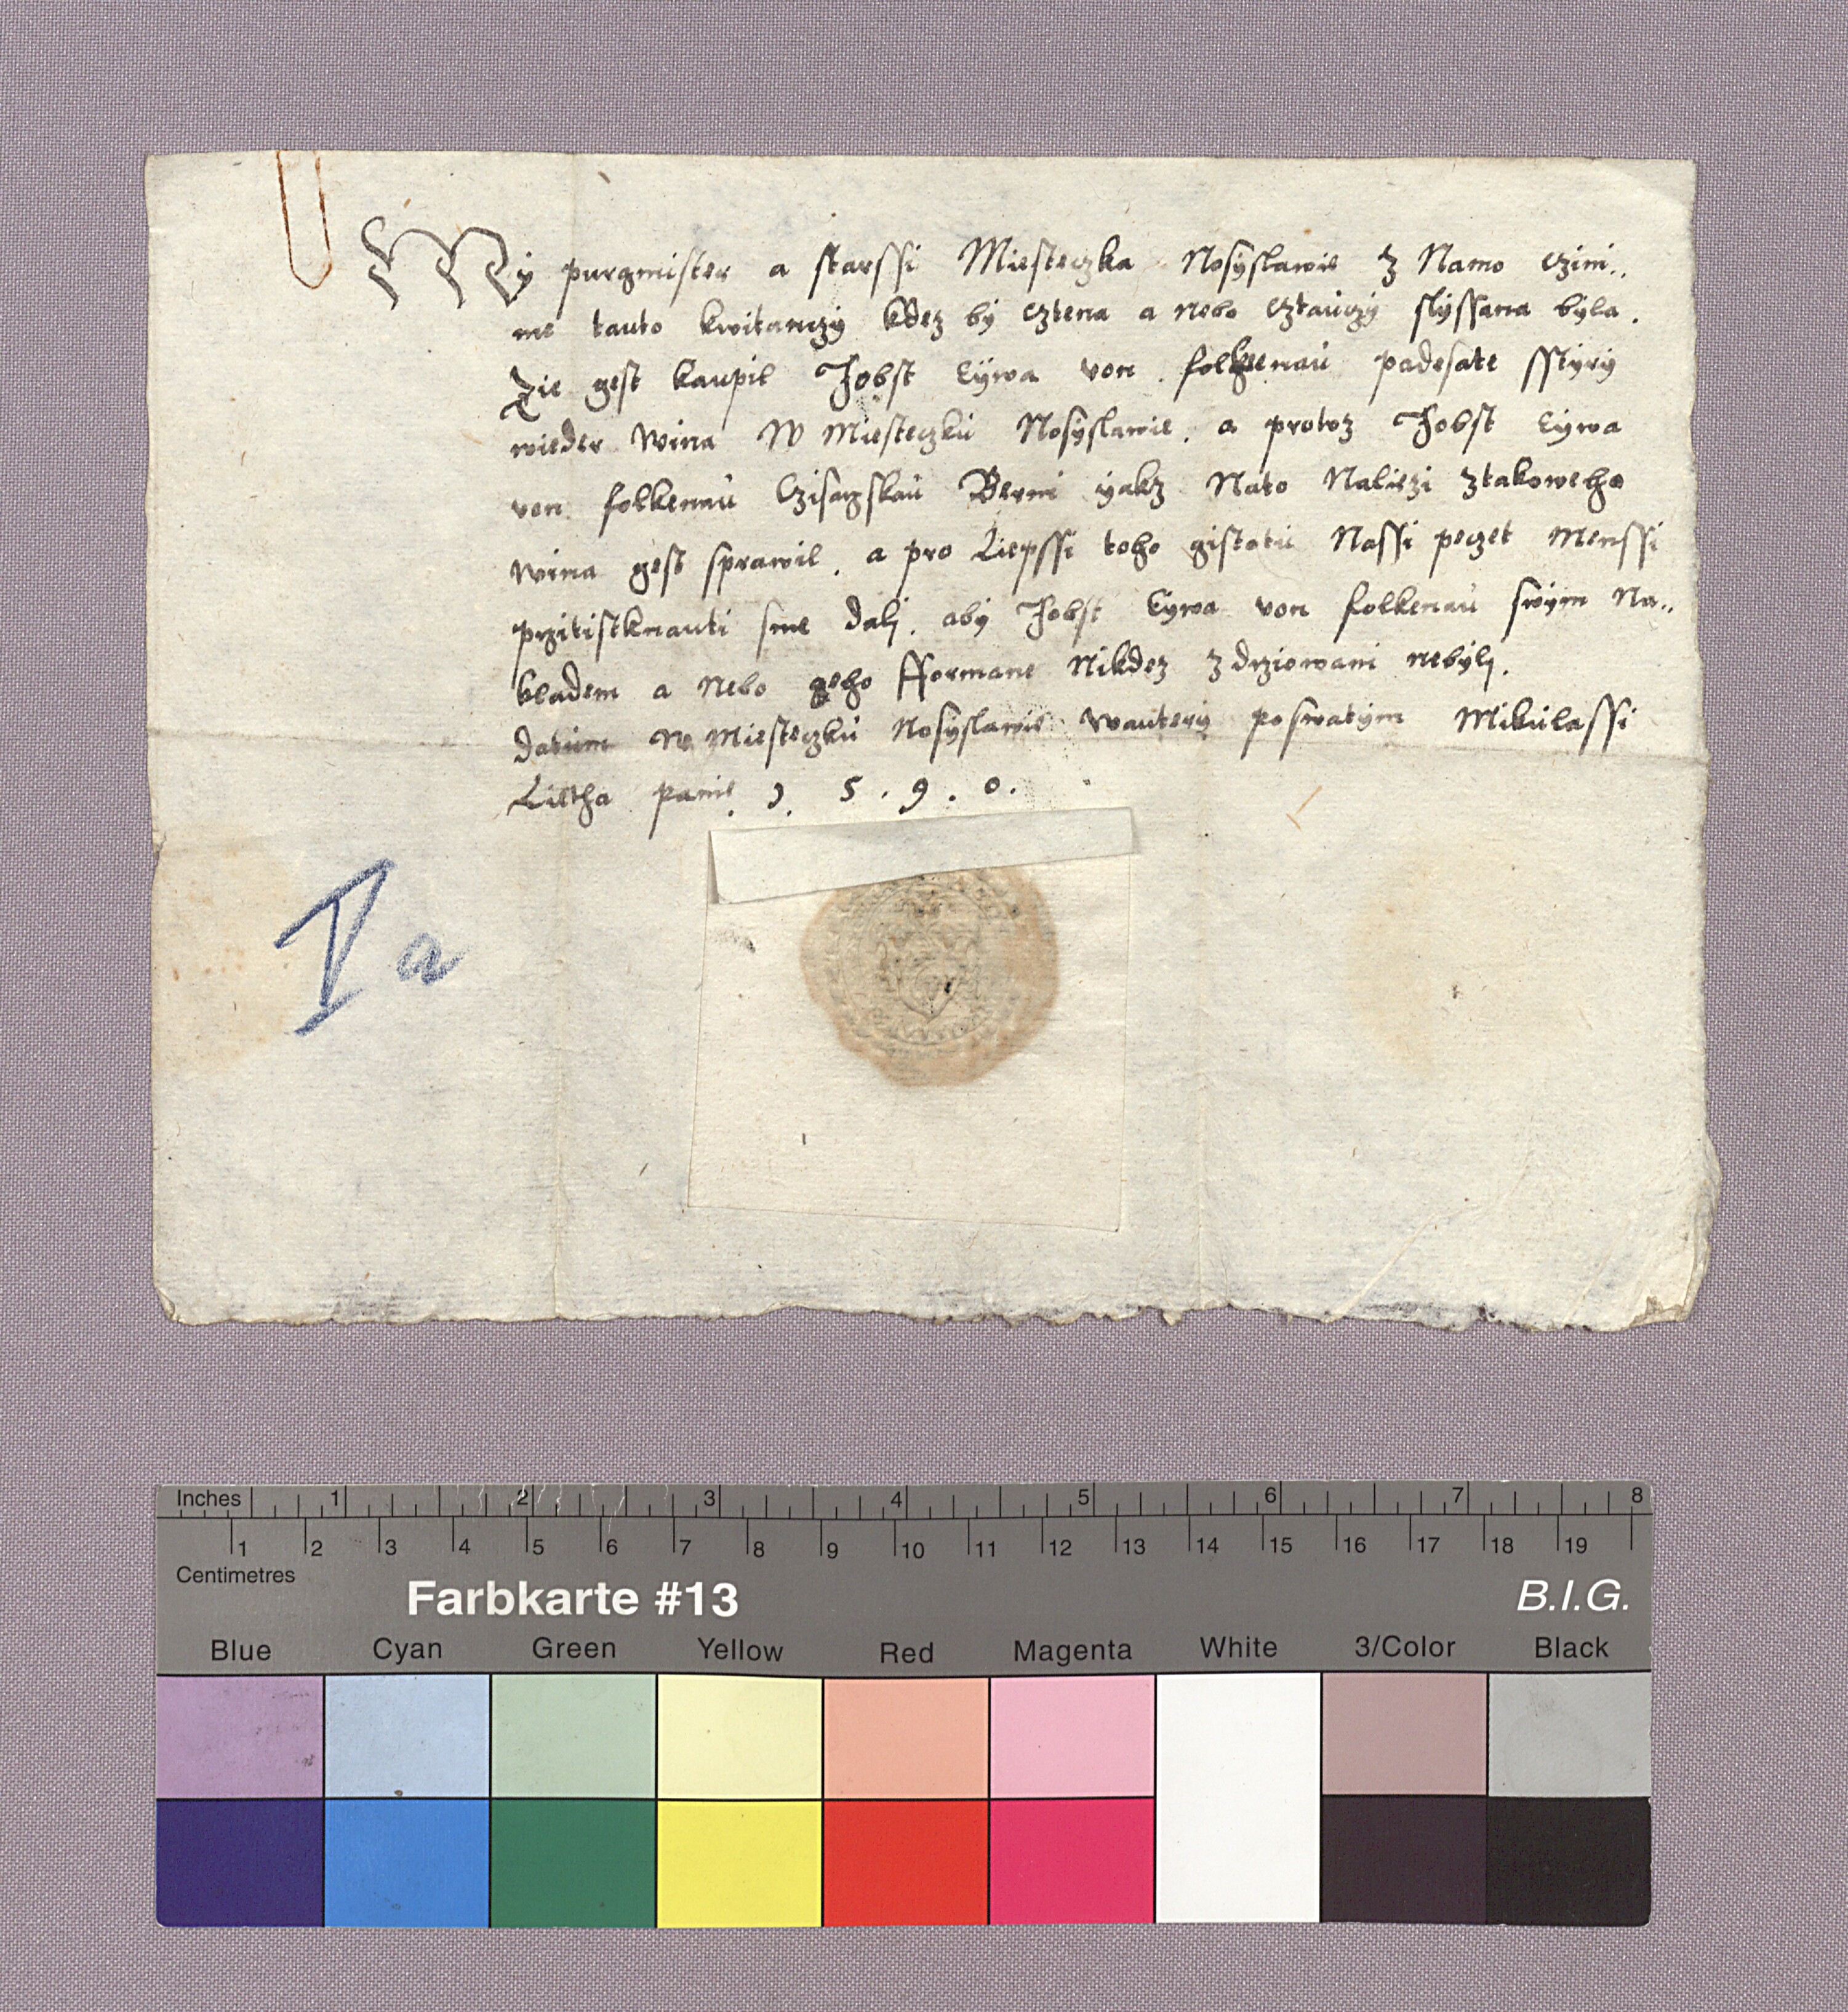 My purgmister a starssi Miesteczka Nosyslawie z Namo czini„
me tauto kwitanczy kdez by cztena a nebo cztauczy slyssana byla.
Zie gest kaupil Jobst Eywa von folkenau padesate sstyry
wieder wina W Miesteczku Nosyslawie. a protoz Jobst Eywa
von folkenau Czisarzskau Berni yakz Nato Naliezi ztakoweho
wina gest sprawil. a pro Liepssi toho gistotu Nassi peczet Menssi
przitistknauti sme dalj. aby Jobst Eywa von folkenau swym Na„
kladem a Nebo geho fformane Nikdez zdrziowani nebylj.
datum W Miesteczku Nosyslawie wautery poswatym Mikulassi
Lietha panie 1. 5. 9. 0.
I a
Inches 1 2 3 4 5 6 7 8
1 2 3 4 5 6 7 8 9 10 11 12 13 14 15 16 17 18 19
Centimetres
Farbkarte #13 B.I.G.
Blue Cyan Green Yellow Red Magenta White 3/Color Black